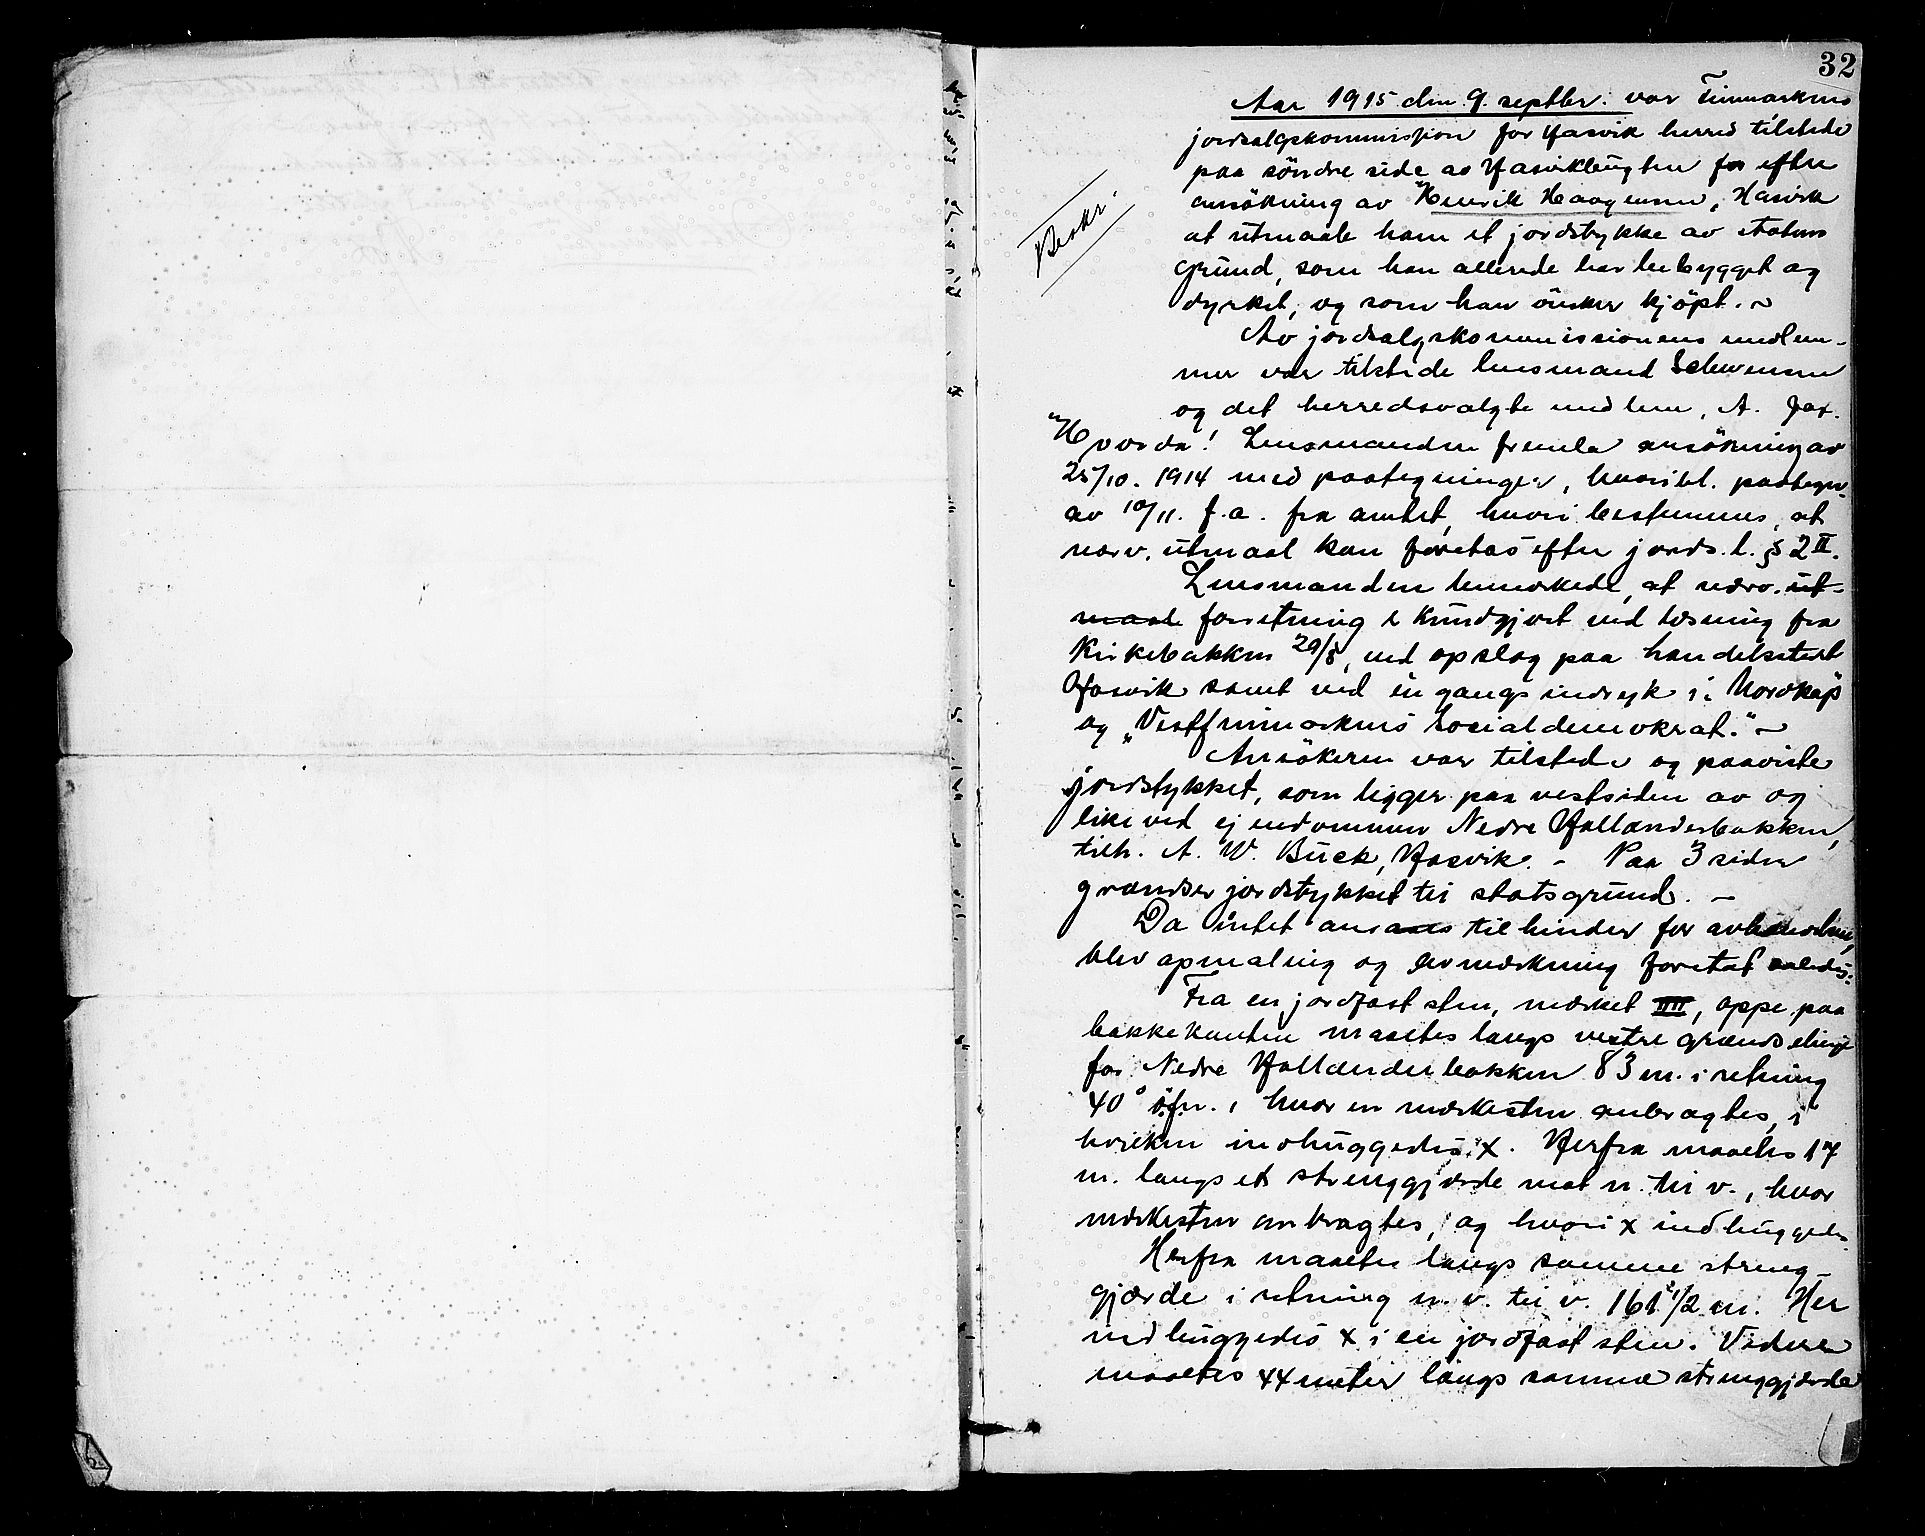 32
Aar 1915 den 9. septbr. var Finmarkens
jordsalgskommission for Hasvik herred tilstede
paa söndre side av Hasvikbugten for efter
ansökning av Henrik Haagensen, Hasvik
at utmaale ham et jordstykke av statens
grund, som han allerede har bebygget og
dyrket, og som han önsker kjöpt. ~
Beskr.
Av jordsalgskommissionens medlem-
mer var tilstede lensmand Schwensen
og det herredsvalgte medlem, A.
Lensmanden fremla ansökning av
25/10. 1914 med paategninger, hvoribl. paategn.
av 10/11. f.a. fra amtet, hvori bestemmes, at
nærv. utmaal kan foretas efter jords.l. § 2 II.
Lensmanden bemerkede, at nærv. ut-
maal forretning er kundgjort ved læsning fra
Kirkebakken 29/8, ved opslag paa handelsstedt
Hasvik samt ved en gangs indryk i "Nordkap"
og „Vestfinmarkens Socialdemokrat." ~
Ansökeren var tilstede og paaviste
jordstykket, som ligger paa vestsiden av og
like ved ejendommen Nedre Hollænderbakken,
tilh. A. W. Buck, Hasvik. - Paa 3 sider
grændser jordstykket til statsgrund. -
Da intet ansaaes til hinder for avhændelsen,
blev opmaling og avmerkning foretat saaledes:
Fra en jordfast sten, merket IIII, oppe paa
bakkekanten maaltes langs vestre grændselinje
for Nedre Hollænderbakken 83 m. i retning
40° ö.f.n., hvor en merkesten anbragtes, i
hvilken indhuggedes X. Herfra maaltes 17
m. langs et strenggjærde mot n. til v., hvor
merkesten anbragtes, og hvori x indhuggedes.
Herfra maaltes langs samme streng-
gjærde i retning n. v. til v. 161 1/2 m. Her
indhuggedes x i en jordfast sten. Videre
maaltes 44 meter langs samme strenggjærde
6.